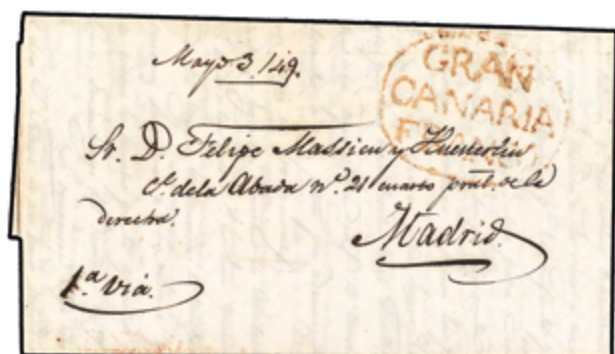 Mayo 3./49.
GRAN
CANARIA
FRANCO
Sr. D. Felipe Massieu y
Cᵉ. de la Abada nº. 21 cuarto pral. de la
derecha.
Madrid.
1.ª via.